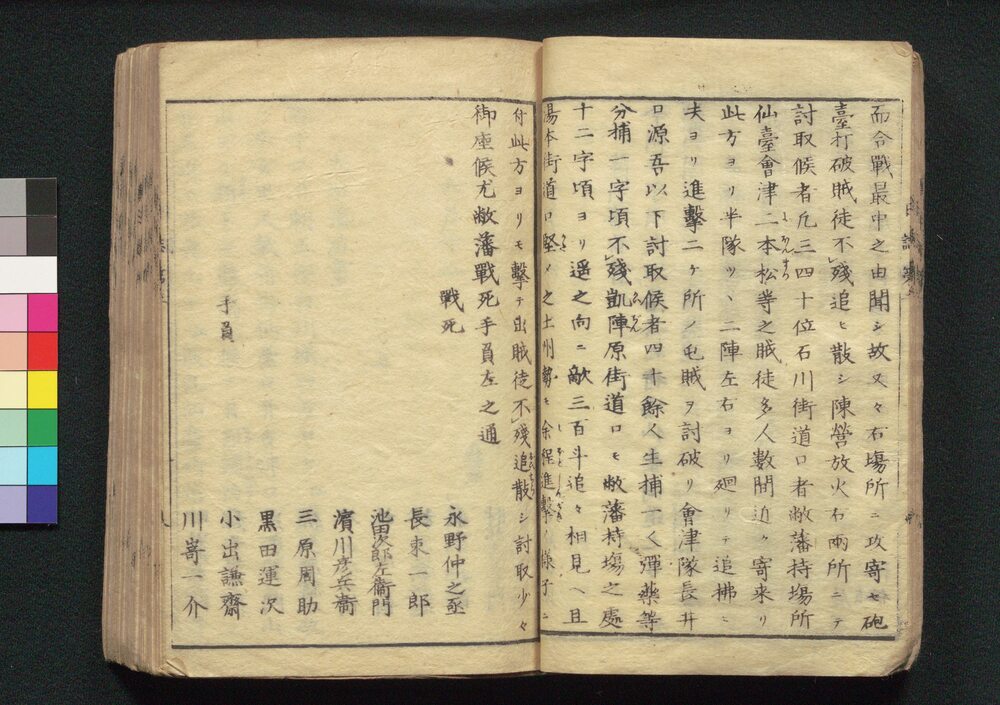 而合戰最中之由聞シ故又々右塲所ニ攻寄セ砲
臺打破賊徒不殘追ヒ散シ陳營放火右兩所ニテ
討取候者凡三四十位石川街道口者敝藩持塲所
仙臺會津二本松等之賊徒多人數間近ク寄来リ
此方ヨリ半隊ツヽ二陣左右ヨリ廻リテ追拂ヒ
夫ヨリ進擊二ケ所ノ屯賊ヲ討破リ會津隊長井
口源吾以下討取候者四十餘人生捕一人彈藥等
分捕一字頃不殘凱陣原街道口モ敝藩持塲之處
十二字頃ヨリ遥之向ニ敵三百斗追々相見ヘ且
湯本街道口堅メ之土州勢モ余程進擊ノ様子ニ
付此方ヨリモ擊テ出賊徒不殘追散シ討取少々
御座候尤敝藩戰死手負左之通
戰死
永野仲之丞
長束一郎
池田次郎左衞門
濱川彦兵衞
三原周助
黒田運次
手員
小出謙齋
川嵜一介